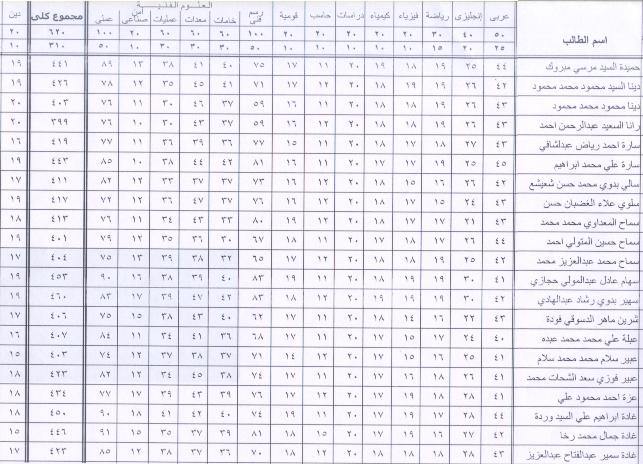 العلوم الفنية
اسم الطالب عربى إنجليزى رياضة فيزياء كيمياء دراسات حاسب قومية رسم فنى خامات معدات عمليات أمن صناعى عملى مجموع كلى دين
٥٠ ٤٠ ٣٠ ٢٠ ٢٠ ٢٠ ٢٠ ٢٠ ١٠٠ ٦٠ ٦٠ ٦٠ ٢٠ ١٠٠ ٦٢٠ ٢٠
٢٥ ٢٠ ١٥ ١٠ ١٠ ١٠ ١٠ ١٠ ٥٠ ٣٠ ٣٠ ٣٠ ١٠ ٥٠ ٣١٠ ١٠
حميدة السيد مرسي مبروك ٤٤ ٢٥ ١٩ ١٨ ١٩ ٢٠ ١١ ١٧ ٧٥ ٤٠ ٤١ ٣٨ ١٣ ٨٩ ٤٤١ ١٩
دينا السيد محمود محمد محمود ٤٢ ٢٦ ١٩ ١٩ ١٨ ٢٠ ١١ ١٧ ٧١ ٤١ ٤٥ ٣٦ ١٢ ٧٨ ٤٢٦ ١٩
دينا محمود محمد محمود ٤٣ ٢٦ ١٩ ١٩ ١٨ ٢٠ ١١ ١٦ ٥٩ ٣٧ ٤٦ ٣٠ ١١ ٧٦ ٤٠٣ ٢٠
رانا السعيد عبدالرحمن احمد ٤٣ ٢٦ ١٩ ١٦ ١٨ ٢٠ ١٢ ١٦ ٥٩ ٣٧ ٤٣ ٣٠ ١٠ ٧٦ ٣٩٩ ٢٠
سارة احمد رياض عبدالشافي ٤٣ ٢٧ ١٨ ١٧ ١٨ ٢٠ ١١ ١٥ ٧٧ ٣٦ ٣٩ ٣٦ ١١ ٧٧ ٤١٩ ١٦
سارة علي محمد ابراهيم ٤٥ ٢٥ ٢٠ ١٩ ١٧ ٢٠ ١١ ١٦ ٨١ ٤٢ ٤٤ ٣٨ ١٠ ٨٥ ٤٤٣ ١٩
سالي بدوي محمد حسن شعيشع ٤٢ ٢٦ ١٦ ١٥ ١٨ ٢٠ ١٢ ١٦ ٧٣ ٣٧ ٣٧ ٣٣ ١٢ ٨٢ ٤١١ ١٧
سلوي علاء الغضبان حسن ٤٣ ٢٤ ١٥ ١٧ ١٧ ٢٠ ١٢ ١٦ ٧٦ ٣٧ ٤٧ ٣٦ ١٢ ٧٢ ٤١٧ ١٩
سماح المعداوي محمد محمد ٤٣ ٢١ ١٧ ١٧ ١٨ ٢٠ ١٢ ١٩ ٨٠ ٣٣ ٤٣ ٣٤ ١١ ٧٦ ٤١٣ ١٨
سماح حسين المتولي احمد ٤٤ ٢٦ ١٧ ١٧ ١٨ ٢٠ ١١ ١٨ ٦٧ ٣٠ ٣٦ ٣٥ ١٢ ٧٩ ٤٠١ ١٩
سماح محمد عبدالعزيز محمد ٤٢ ٢٥ ١٩ ١٨ ١٨ ٢٠ ١٢ ١٧ ٦٥ ٣٢ ٣٨ ٣٩ ١٣ ٧٥ ٤٠٤ ١٧
سهام عادل عبدالمولي حجازي ٤١ ٣٠ ١٩ ١٩ ١٨ ٢٠ ١١ ١٩ ٨٣ ٤٠ ٣٩ ٣٨ ١٦ ٩٠ ٤٥٣ ١٩
سهير بدوي رشاد عبدالهادي ٤٢ ٣٠ ١٩ ١٩ ١٩ ٢٠ ١٢ ١٨ ٨٣ ٤٢ ٤٧ ٣٩ ١٧ ٨٣ ٤٦٠ ١٩
شرين ماهر الدسوقي فودة ٤٣ ٢٢ ١٦ ١٤ ١٨ ٢٠ ١٢ ١٧ ٦٢ ٤٠ ٤٣ ٣٨ ١٥ ٧٥ ٤٠٦ ١٧
عبلة علي محمد محمد عبده ٤٠ ٢٤ ١٧ ١٥ ١٧ ٢٠ ١١ ١٧ ٦٨ ٣٦ ٤١ ٣٤ ١١ ٨٤ ٤٠٧ ١٦
عبير سلام محمد محمد سلام ٤١ ٢٥ ١٦ ١٥ ١٧ ٢٠ ١٢ ١٤ ٧١ ٣٤ ٣٨ ٣٧ ١٢ ٧٤ ٤٠٣ ١٥
عبير فوزي سعد الشحات محمد ٤١ ٢٦ ١٨ ١٦ ١٧ ٢٠ ١٢ ١٨ ٧٤ ٣٨ ٤٥ ٣٤ ١٢ ٨٢ ٤٢٣ ١٨
عزة احمد محمود علي ٤١ ٢٨ ١٨ ١٩ ١٧ ٢٠ ١٢ ١٧ ٧٦ ٣٩ ٤٣ ٣٩ ١٧ ٧٧ ٤٣٤ ١٨
غادة ابراهيم علي السيد وردة ٤٤ ٢٨ ١٧ ١٨ ١٧ ٢٠ ١١ ١٩ ٧٤ ٤٠ ٤٢ ٤١ ١٨ ٩٠ ٤٥٠ ١٨
غادة جمال محمد رخا ٤٢ ٢٧ ١٦ ١٩ ١٧ ٢٠ ١٥ ١٨ ٨١ ٣٩ ٣٧ ٣٥ ١٥ ٩١ ٤٤٦ ١٥
غادة سمير عبدالفتاح عبدالعزيز ٤٣ ٢٨ ١٧ ١٨ ١٧ ٢٠ ١٢ ١٨ ٧٠ ٣٦ ٣٣ ٣٨ ١٢ ٨٥ ٤٢٣ ١٧